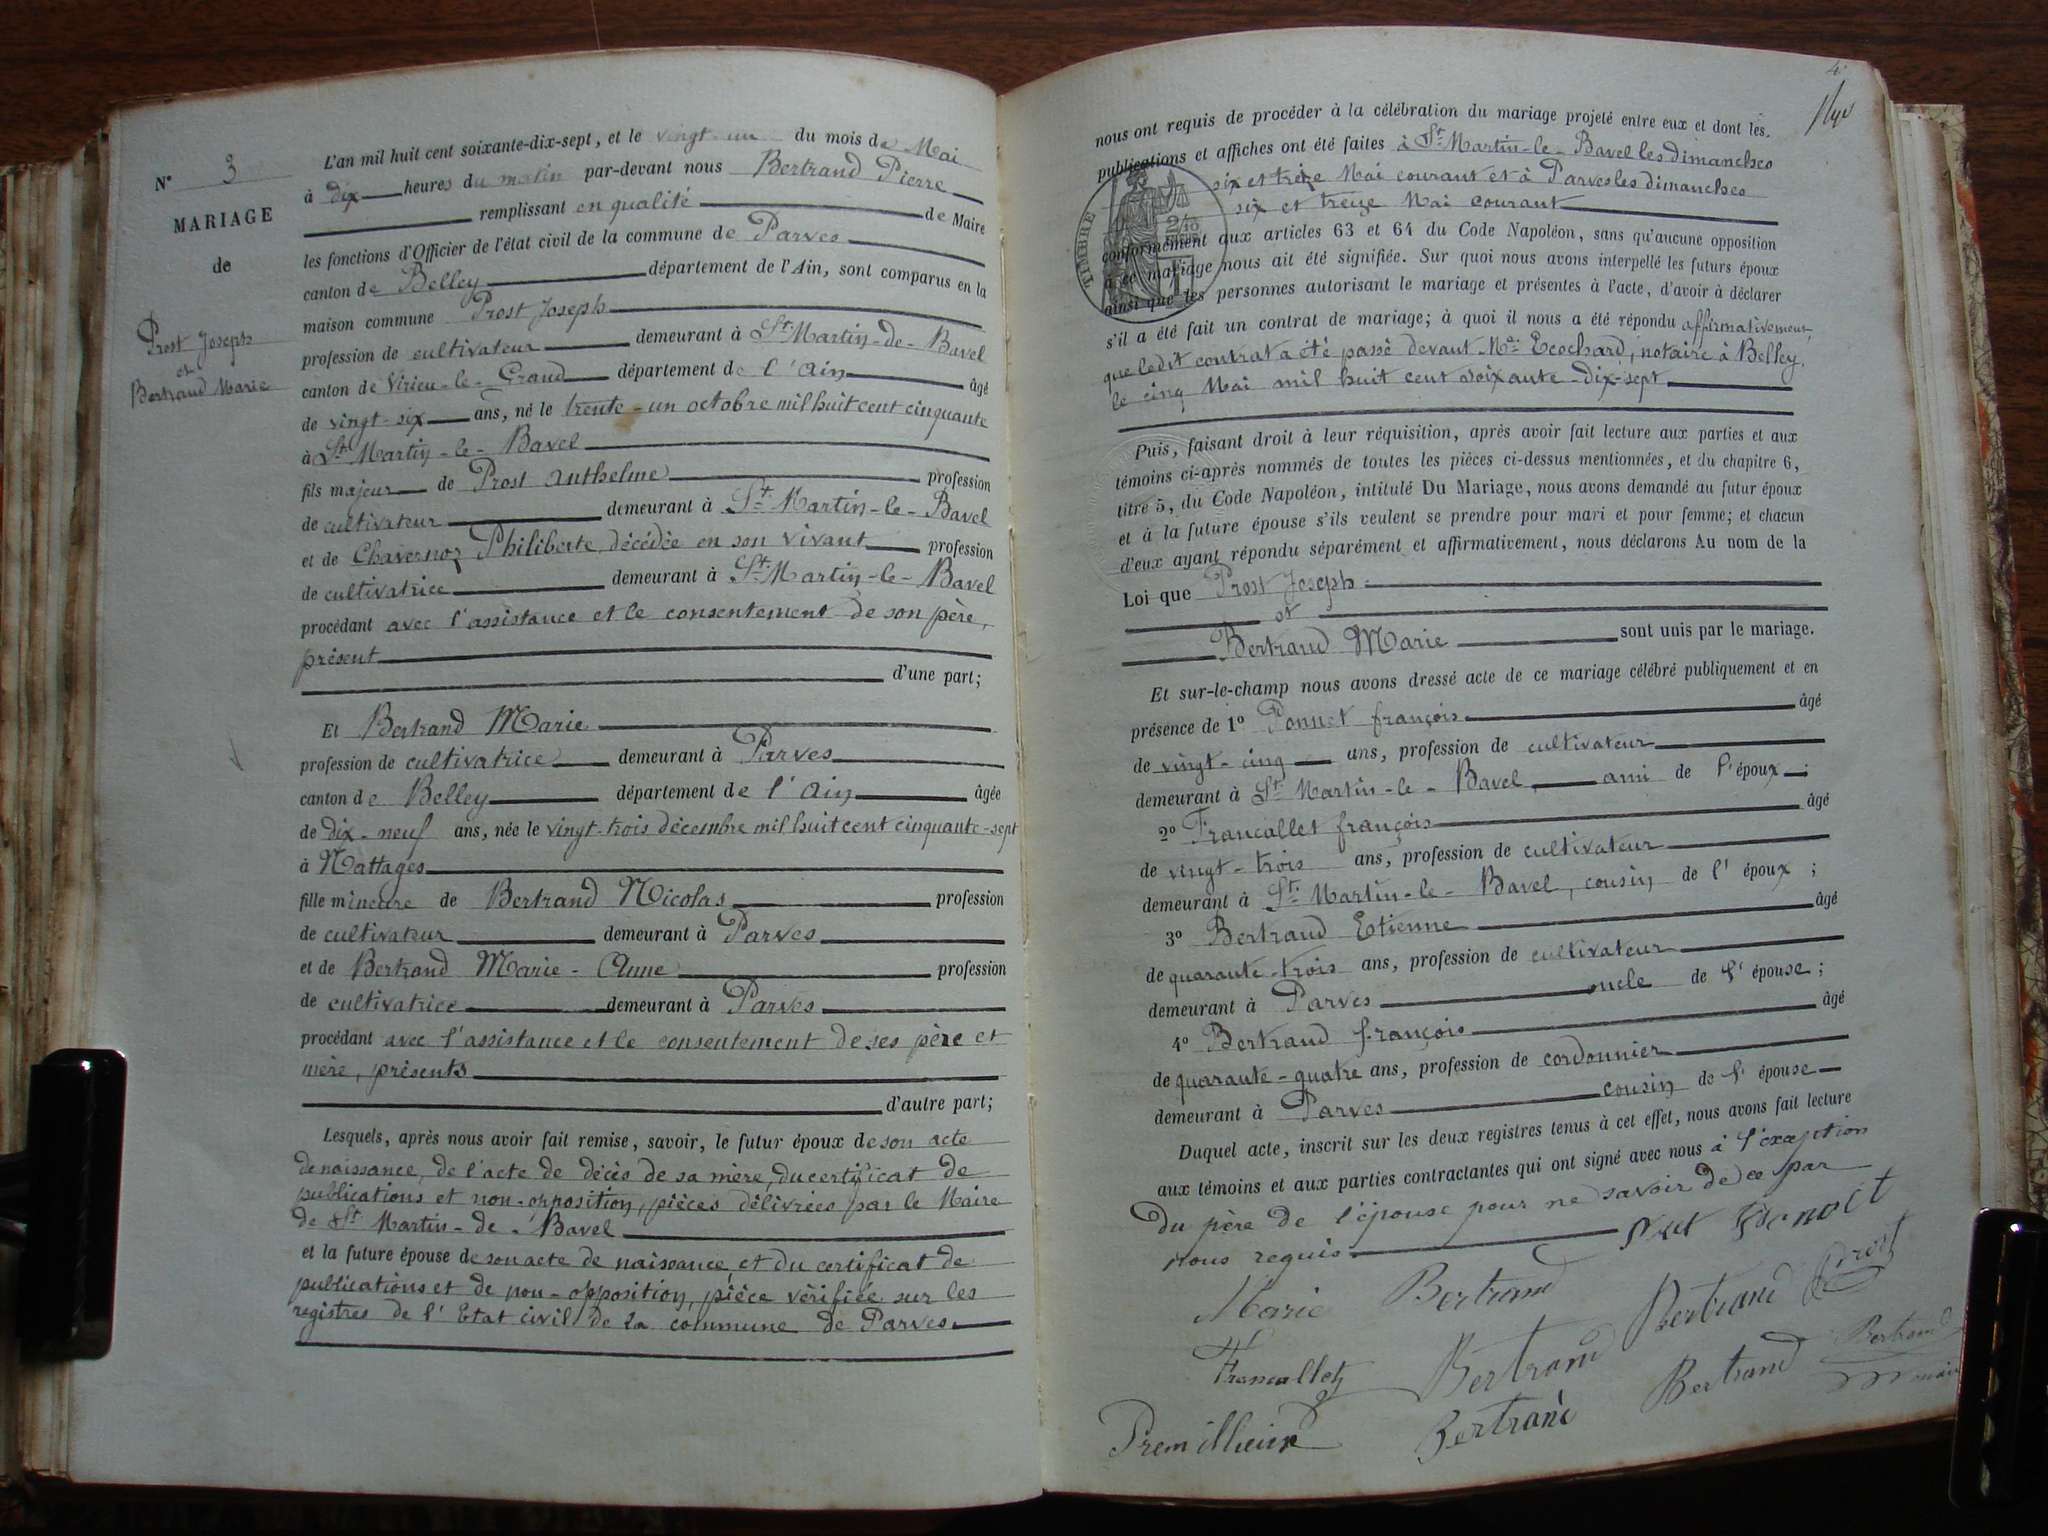 N° 3
MARIAGE
de
Prost Joseph
et
Bertrand Marie
L'an mil huit cent soixante-dix-sept, et le vingt-un du mois de Mai
à dix heures du matin par-devant nous Bertrand Pierre
remplissant en qualité de Maire
les fonctions d'Officier de l'état civil de la commune de Parves
canton de Belley département de l'Ain, sont comparus en la
maison commune Prost Joseph
profession de cultivateur demeurant à St. Martin-de-Bavel
canton de Virieu-le-Grand département de l'Ain âgé
de vingt-six ans, né le trente-un octobre mil huit cent cinquante
à St. Martin-le-Bavel
fils majeur de Prost Anthelme profession
de cultivateur demeurant à St. Martin-le-Bavel
et de Chavernoz Philiberte, décédée en son vivant profession
de cultivatrice demeurant à St. Martin-le-Bavel
procédant avec l'assistance et le consentement de son père,
présent
d'une part;
Et Bertrand Marie
profession de cultivatrice demeurant à Parves
canton de Belley département de l'Ain âgée
de dix-neuf ans, née le vingt-trois décembre mil huit cent cinquante-sept
à Nattages
fille mineure de Bertrand Nicolas profession
de cultivateur demeurant à Parves
et de Bertrand Marie-Anne profession
de cultivatrice demeurant à Parves
procédant avec l'assistance et le consentement de ses père et
mère, présents
d'autre part;
Lesquels, après nous avoir fait remise, savoir, le futur époux de son acte
de naissance, de l'acte de décès de sa mère, du certificat de
publications et non-opposition, pièces délivrées par le Maire
de St Martin-de-Bavel
et la future épouse de son acte de naissance et du certificat de
publications et de non-opposition, pièce vérifiée sur les
registres de l'Etat civil de la commune de Parves.
4
nous ont requis de procéder à la célébration du mariage projeté entre eux et dont les
publications et affiches ont été faites à St. Martin-le-Bavel les dimanches
six et treize Mai courant et à Parves les dimanches
six et treize Mai courant
TIMBRE
conformément aux articles 63 et 64 du Code Napoléon, sans qu'aucune opposition
à ce mariage nous ait été signifiée. Sur quoi nous avons interpellé les futurs époux
ainsi que les personnes autorisant le mariage et présentes à l'acte, d'avoir à déclarer
s'il a été fait un contrat de mariage; à quoi il nous a été répondu affirmativement,
que ledit contrat a été passé devant Me. Ecochard, notaire à Belley,
le cinq Mai mil huit cent soixante-dix-sept
Puis, faisant droit à leur réquisition, après avoir fait lecture aux parties et aux
témoins ci-après nommés de toutes les pièces ci-dessus mentionnées, et du chapitre 6,
titre 5, du Code Napoléon, intitulé Du Mariage, nous avons demandé au futur époux
et à la future épouse s'ils veulent se prendre pour mari et pour femme; et chacun
d'eux ayant répondu séparément et affirmativement, nous déclarons Au nom de la
Loi que Prost Joseph
et
Bertrand Marie sont unis par le mariage.
Et sur-le-champ nous avons dressé acte de ce mariage célébré publiquement et en
présence de 1° Ponnet françois âgé
de vingt-cinq ans, profession de cultivateur
demeurant à St. Martin-le-Bavel, ami de l'époux;
2° Francallet françois âgé
de vingt-trois ans, profession de cultivateur
demeurant à St. Martin-le-Bavel, cousin de l'époux;
3° Bertrand Etienne âgé
de quarante-trois ans, profession de cultivateur
demeurant à Parves oncle de l'épouse;
4° Bertrand françois âgé
de quarante-quatre ans, profession de cordonnier
demeurant à Parves cousin de l'épouse
Duquel acte, inscrit sur les deux registres tenus à cet effet, nous avons fait lecture
aux témoins et aux parties contractantes qui ont signé avec nous à l'exception
du père de l'épouse pour ne savoir de ce par
nous requis
Marie Bertrand Bertrand Prost
Francallet Bertrand Bertrand Bertrand
Premillieux Bertrand maire